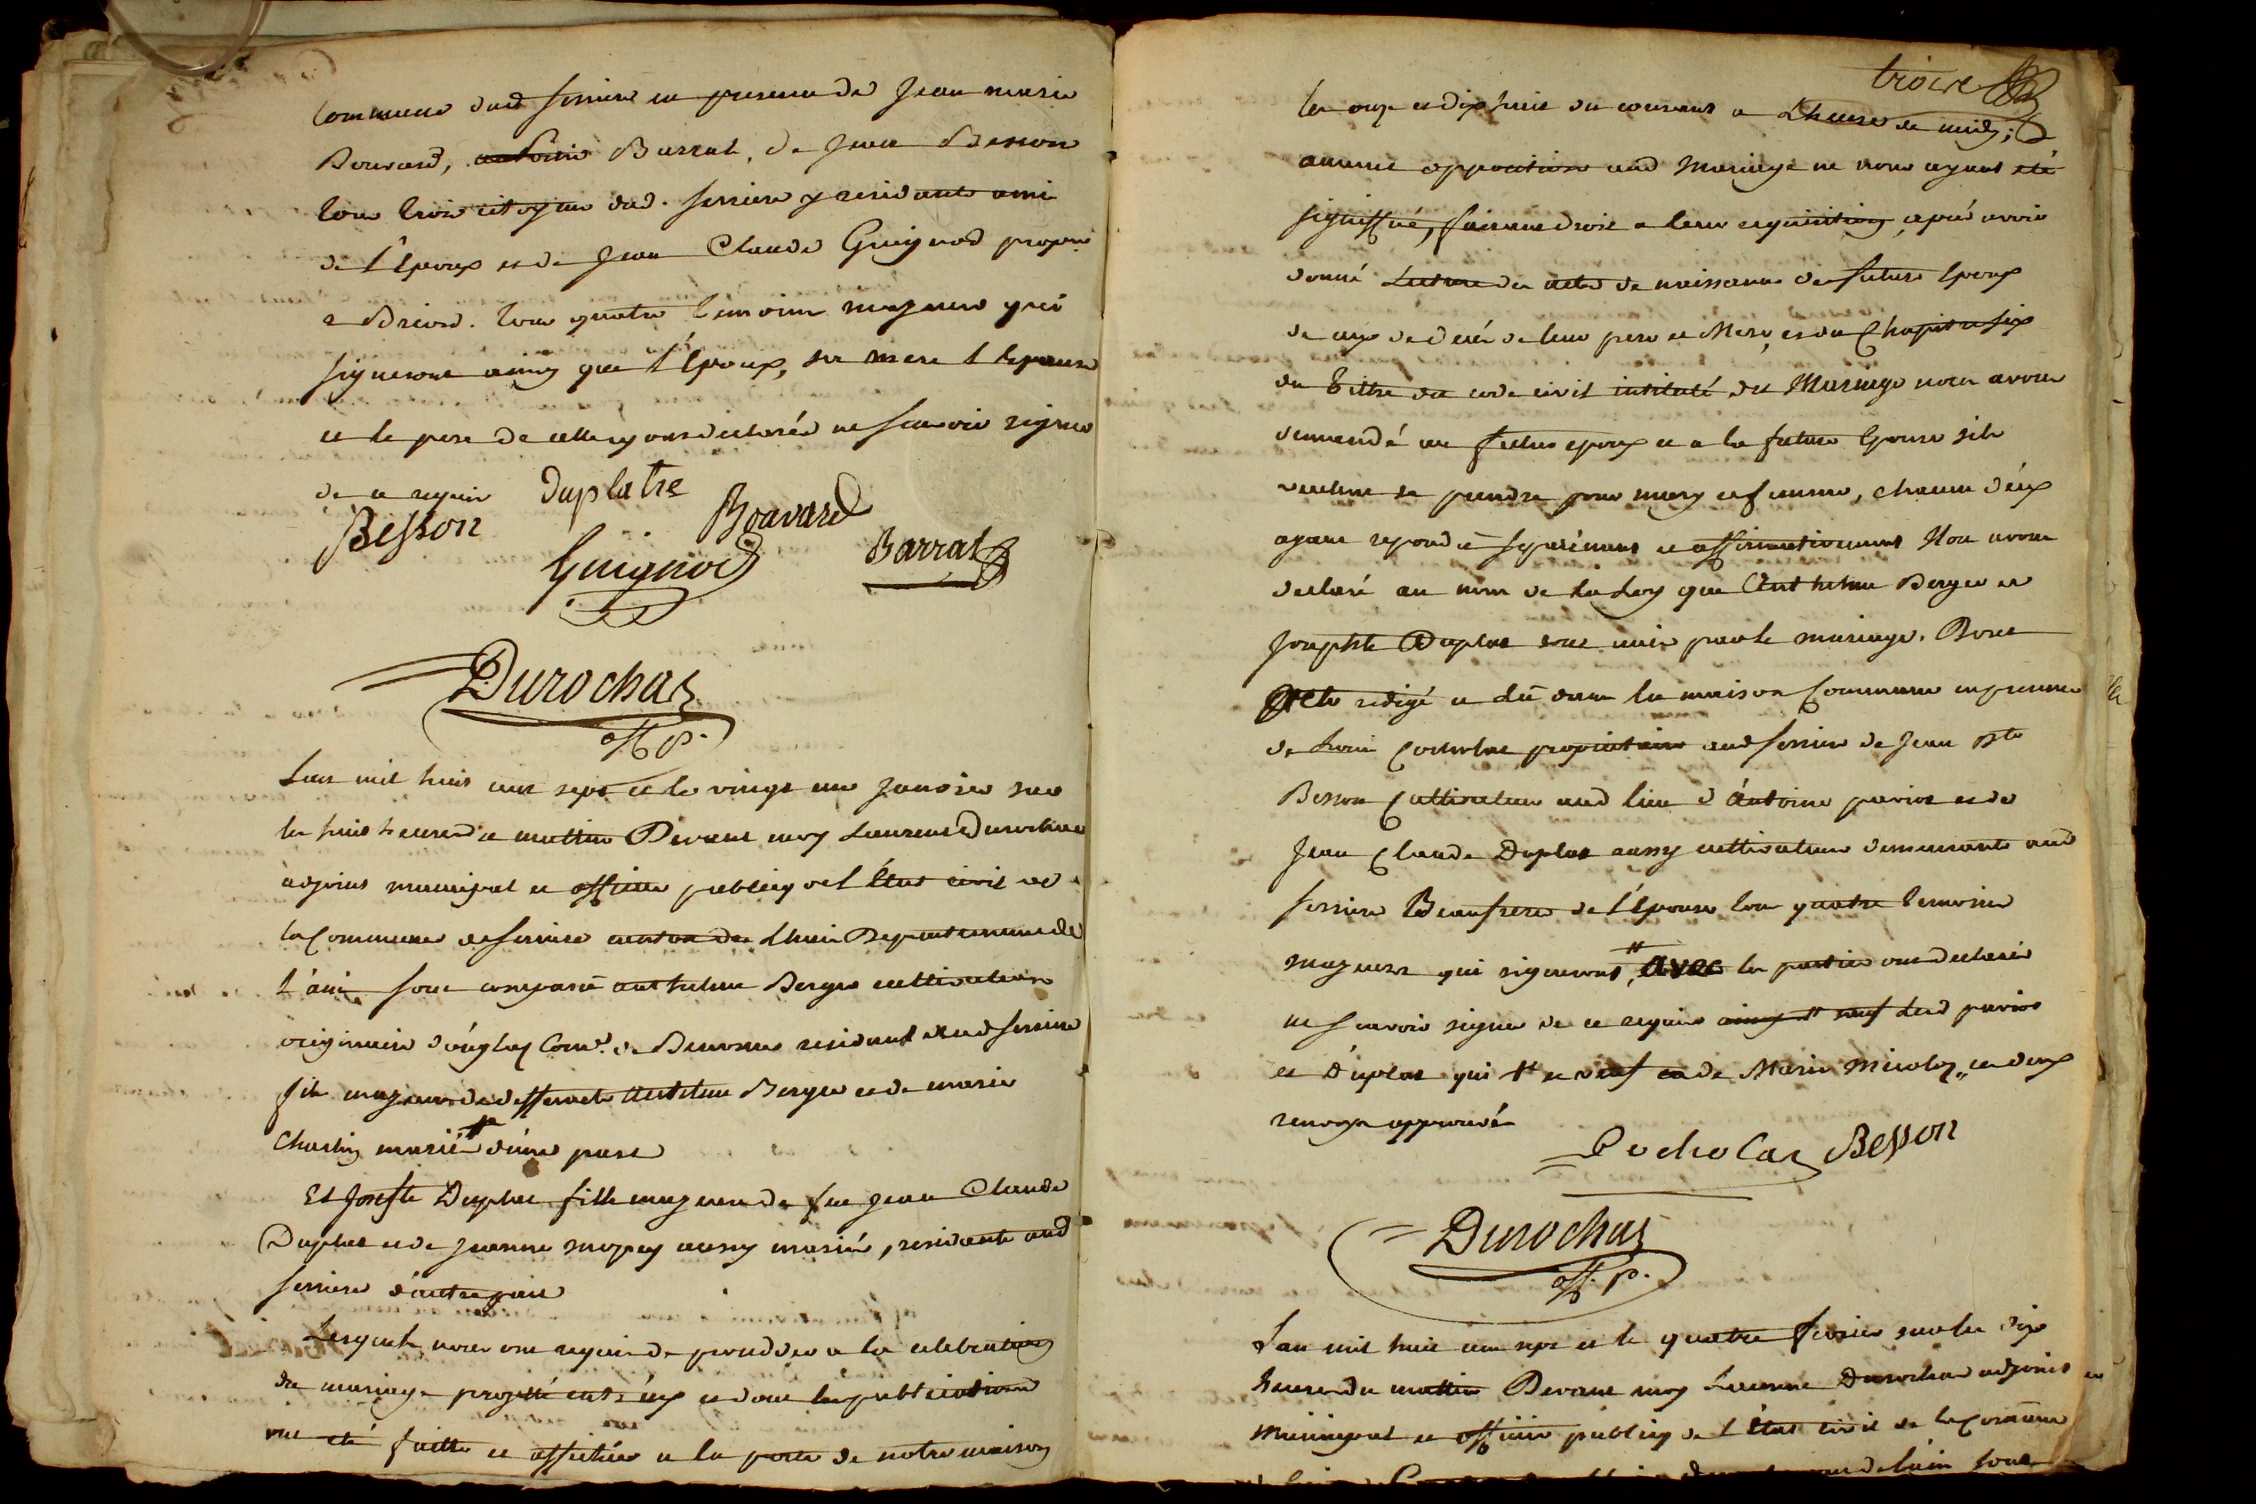 commune dud serriere en presence de Jean marie
Bouvard, antoine Barrat, de Jean Besson
tous trois citoyens dud. serriere y residants amis
de l'Epoux et de Jean Claude Guignod propre
a Briord. tous quatre temoins majeurs qui
signeront ainsy que l'Epoux, sa mere l'epouse
et le pere de celle cy ont declarés ne scavoir signer
de ce requis
duplatre
Besson
Bouvard
Guignod
Barrat
Durochat
off. p.
Lan mil huit cent sept et le vingt un janvier sur
les huit heures du mattin Devant moy Laurent Durochat
adjoint municipal et officier publicq de l'Etat civil de
la Commune de serriere canton de Lhuis Departement de
l'ain sont comparu anthelme Berger cultivateur
originaire d'                  de Benonce residant aud serriere
fils majeur de deffunct anthelme Berger et de marie
Charlin mariés # d'une part
Et Josephte Duplat fille majeure de feu jean Claude
Duplat et de jeanne                  aussy mariés, residante aud
serriere d'autre part
Lesquels nous ont requis de proceder a la celebration
du mariage projetté entr'eux et dont les publications
ont eté faittes et affichées a la porte de notre maison
troize
les onze et dix huit du courant a Lheure de midy;
aucune opposition aud Mariage ne nous ayant eté
signiffiée, faisant droit a leur requisition, après avoir
donné Lecture des actes de naissance des futurs Epoux
de ceux de decés de leur pere et Mere, et du Chapitre six
du tittre du code civil intitulé du Mariage nous avons
demandé au futur epoux et a la future Epouse sils
veulent se prendre pour mary et femme, chacun d'eux
ayant repondu separément et affirmativement Nous avons
declaré au nom de la Loy que Anthelme Berger et
Josephte Duplat sont unis par le mariage. Dont
Acte redigé et lû dans la maison Commune en presence
de Louis Cocholat proprietaire aud serriere de Jean Bte
Besson Cultivateur aud lieu d'Antoine parios et de
Jean Claude Duplat aussy cultivateurs demeurants aud
serriere Beaufrere de l'Epouse tous quatre temoins
majeurs qui signeront, # avec les parties ont declarés
ne scavoir signer de ce requis ainsy # sauf Led parios
et Duplat qui # et veuf de Marie              ces deux
renvoys approuvés
Cocholat Besson
Durochat
off. p.
Lan mil huit cent sept et le quatre fevrier sur les dix
heures du mattin Devant moy Laurent Durochat adjoint
municipal et officier publicq de l'Etat civil de la Commune